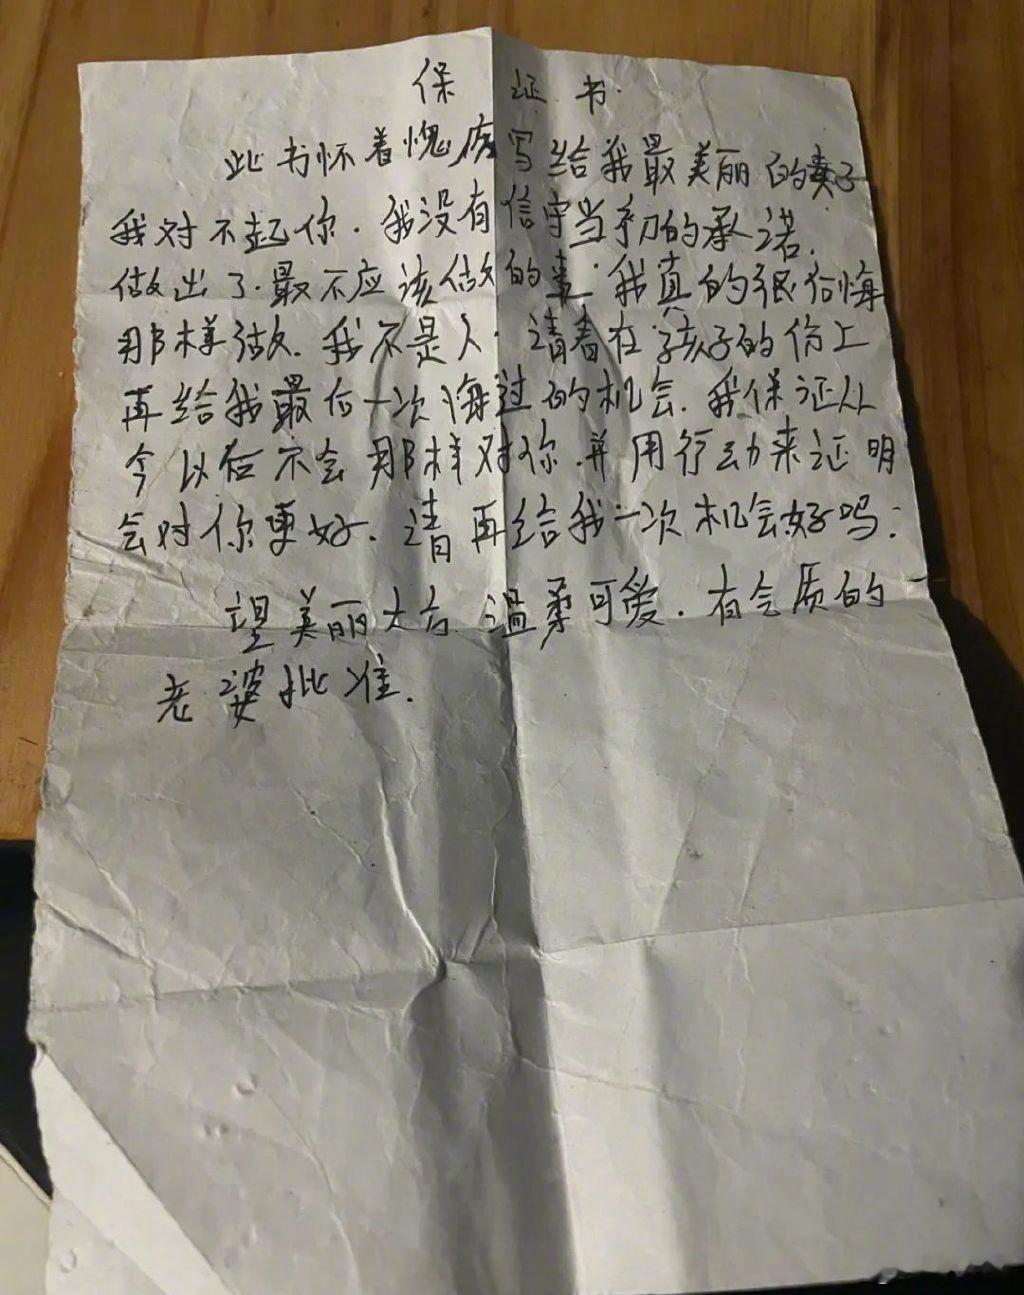 保证书
此书怀着愧疚写给我最美丽的妻子
我对不起你.我没有信守当初的承诺.
做出了.最不应该做的事.我真的很后悔
那样做.我不是人.请看在孩子的份上
再给我最后一次悔过的机会.我保证从
今以后不会那样对你.并用行动来证明
会对你更好.请再给我一次机会好吗:
望美丽大方.温柔可爱.有气质的
老婆批准.